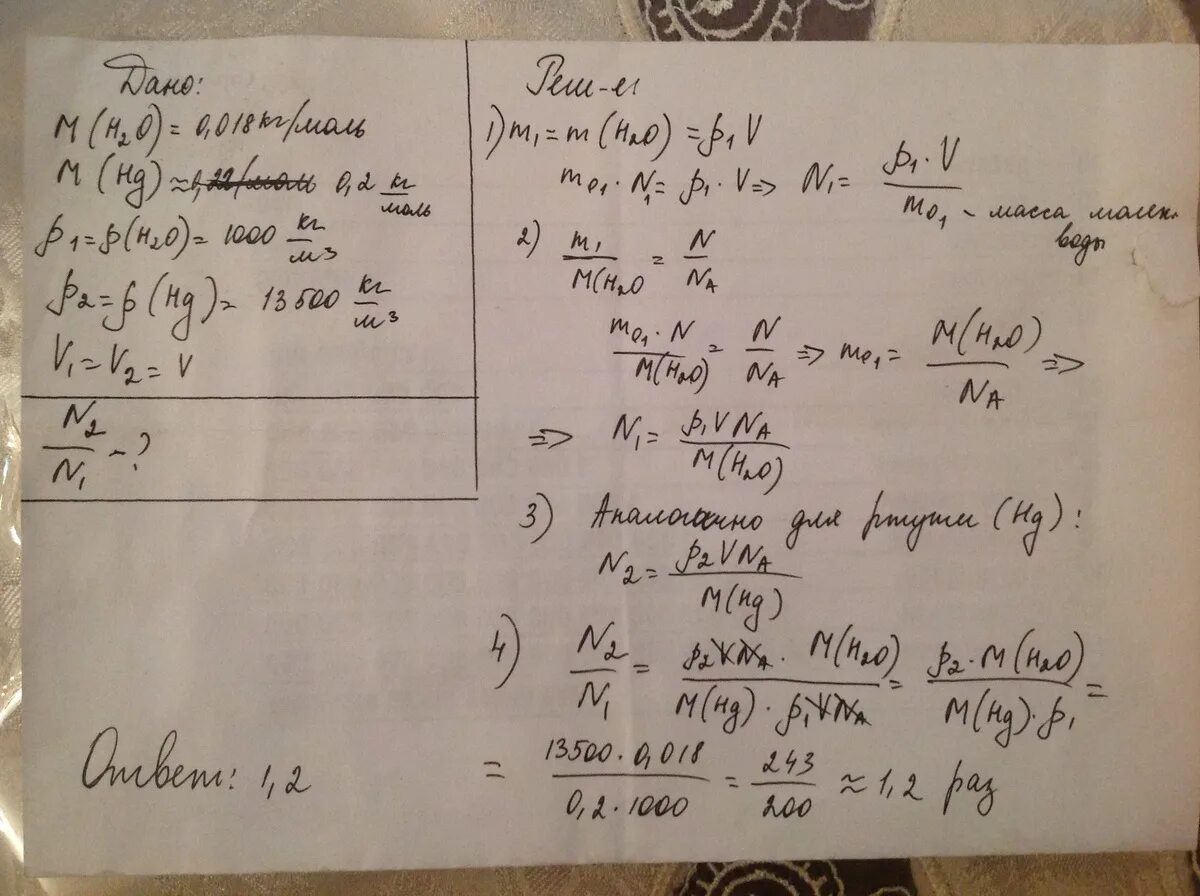 Дано:
M(H₂O) = 0,018 кг/моль
M(Hg) ≈ 0,2 кг/моль
ρ₁ = ρ(H₂O) = 1000 кг/м³
ρ₂ = ρ(Hg) = 13500 кг/м³
V₁ = V₂ = V
N₂/N₁ - ?
Реш-е:
1) m₁ = m(H₂O) = ρ₁V
m₀₁ · N₁ = ρ₁ · V => N₁ = ρ₁·V / m₀₁ - масса молек.
воды
2) m₁/M(H₂O = N/N_A
m₀₁·N / M(H₂O) = N/N_A => m₀₁ = M(H₂O)/N_A =>
=> N₁ = ρ₁VN_A / M(H₂O)
3) Аналогично для ртути (Hg):
N₂ = ρ₂VN_A / M(Hg)
4) N₂/N₁ = ρ₂VN_A · M(H₂O) / M(Hg) · ρ₁VN_A = ρ₂·M(H₂O) / M(Hg)·ρ₁ =
= 13500·0,018 / 0,2·1000 = 243/200 ≈ 1,2 раз
Ответ: 1,2